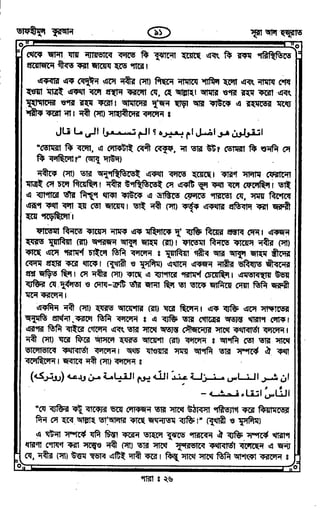 তাফহীমুল কুরআন
৯১
সূরা আল হুজুরাত
থেকে জানা যায় ন্যায়সংগত বলতে কি বুঝানো হয়েছে এবং কি রকম পরিস্থিতিতে
প্রয়োজনে গীবত করা জায়েয হতে পারে।
একবার এক বেদুঈন এসে নবীর (সা) পিছনে নামাযে শামিল হলো এবং নামায শেষ
হওয়া মাত্রই একথা বলে প্রস্থান করলো যে, হে আল্লাহ! আমার ওপর রহম করো এবং
মুহাম্মাদের ওপর রহম করো। আমাদের দু'জন ছাড়া আর কাউকে এ রহমতের মধ্যে
শরীক করো না। নবী (সা) সাহাবীদের বললেন ঃ
اتقولون هو اضل ام بعيره ؟ الم تسمعوا الى ما قال
"তোমরা কি বলো, এ লোকটাই বেশী বেকুফ, না তার উট? তোমরা কি শুননি সে
কি বলছিলো?" (আবু দাউদ)
নবীকে (সা) তার অনুপস্থিতিতেই একথা বলতে হয়েছে। কারণ সালাম ফেরানো
মাত্রই সে চলে গিয়েছিল। নবীর উপস্থিতিতেই সে একটি ভুল কথা বলে ফেলেছিল। তাই
এ ব্যাপারে তাঁর নিশ্চুপ থাকা কাউকে এ ভ্রান্তিতে ফেলতে পারতো যে, সময় বিশেষে
এরূপ কথা বলা হয় তো জায়েয। তাই নবী (সা) কর্তৃক একথার প্রতিবাদ করা জরুরী
হয়ে পড়েছিলো।
ফাতেমা বিনতে কায়েস নামক এক মহিলাকে দু' ব্যক্তি বিয়ের প্রস্তাব দেন। একজন
হযরত মুয়াবিয়া (রা) অপরজন আবুল জাহম (রা)। ফাতেমা বিনতে কায়েস নবীর (সা)
কাছে এসে পরামর্শ চাইলে তিনি বললেন ঃ মুয়াবিয়া গরীব আর আবুল জাহম স্ত্রীদের
বেদম প্রহার করে থাকে। (বুখারী ও মুসলিম) এখানে একজন নারীর ভবিষ্যৎ জীবনের
প্রশ্ন জড়িত ছিল। সে নবীর (সা) কাছে এ ব্যাপারে পরামর্শ চেয়েছিল। এমতাবস্থায় উভয়
ব্যক্তির যে দুর্বলতা ও দোষ-ত্রুটি তাঁর জানা ছিল তা তাকে জানিয়ে দেয়া তিনি জরুরী
মনে করলেন।
একদিন নবী (সা) হযরত আয়েশার (রা) ঘরে ছিলেন। এক ব্যক্তি এসে সাক্ষাতের
অনুমতি প্রার্থনা করলে তিনি বললেন ঃ এ ব্যক্তি তার গোত্রের অত্যন্ত খারাপ লোক।
এরপর তিনি বাইরে গেলেন এবং তার সাথে অত্যন্ত সৌজন্যের সাথে কথাবার্তা বললেন।
নবী (সা) ঘরে ফিরে আসলে হযরত আয়েশা (রা) বললেন ঃ আপনি তো তার সাথে
ভালোভাবে কথাবার্তা বললেন। অথচ যাওয়ার সময় আপনি তার সম্পর্কে ঐ কথা
বলেছিলেন। জবাবে নবী (সা) বললেন ঃ
ان شر الناس منزلة عند الله يوم القيامة من ودعه (اوتركه)
الناس اتقاء فحشه -
"যে ব্যক্তির কটু বাক্যের ভয়ে লোকজন তার সাথে উঠাবসা পরিত্যাগ করে কিয়ামতের
দিন সে হবে আল্লাহ তা'আলার কাছে জঘন্যতম ব্যক্তি।" (বুখারী ও মুসলিম)
এ ঘটনা সম্পর্কে যদি চিন্তা করেন তাহলে বুঝতে পারবেন ঐ ব্যক্তি সম্পর্কে খারাপ
ধারণা পোষণ করা সত্ত্বেও নবী (সা) তার সাথে সুন্দরভাবে কথাবার্তা বলেছেন এ জন্য
যে, নবীর (সা) উত্তম স্বভাব এটিই দাবী করে। কিন্তু সাথে সাথে তিনি আশংকা করলেন ঃ
পারা ঃ ২৬